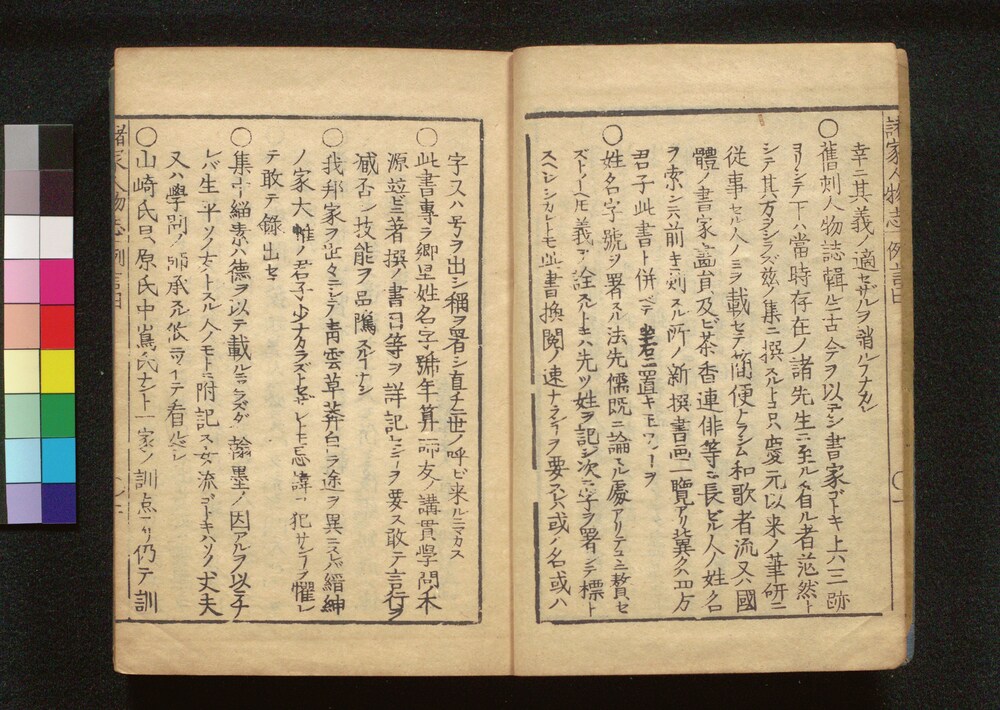 諸家人物志 例言
幸ニ其義ノ適セザルヲ誚ルヿナカレ
〇舊刻人物誌輯ニ古今ヲ以テシ書家ゴトキ上六三跡
ヨリシテ下ハ當時存在ノ諸先生ニ至ル看ル者茫然ト
シテ其方ヲシラズ茲ノ集ニ撰スルトコロ只慶元以来ノ筆研ニ
従事セル人ノミヲ載セテ簡便トラシム和歌者流又ハ國
體ノ書家畫員及ビ茶香連俳等ニ長ゼル人ノ姓名
ヲ索ル前キニ刻スル所ノ新撰書畫一覧アリ冀クハ四方
君子此書ト併ベテ坐右ニ置キ玉ワンヿヲ
〇姓名字號ヲ署スル法先儒既ニ論スル處アリテユニ贅セ
ズトイヘ𪜈義ヲ詮スルトキハ先ツ姓ヲ記シ次ニ字ヲ署シテ標ト
スヘシシカレトモ此書換閲ノ速ナランヿヲ要スレハ或ハ名或ハ
字スハ号ヲ出シ稱ヲ署シ直チニ世ノ呼ビ来ルニマカス
〇此書專ラ郷里姓名字號年算師友講貫學問禾
源並ビニ著撰ノ書目等ヲ詳記センヿヲ要ス敢テ言行ヲ
臧否シ技能ヲ品隲スルヿナシ
〇我邦家ヲ世々ニシテ青雲草莽自ラ途ヲ異ニスレバ縉紳
ノ家大帷ノ君子少ナカラズトイヘトモ忌諱ヲ犯サンヿヲ懼レ
テ敢テ録出セズ
〇集中緇素ハ德ヲ以テ載ルニアラズ翰墨ノ因アルヲ以テ
レバ生平ソノ友トスル人ノモトニ附記ス女流ゴトキハソノ丈夫
又ハ學刷ノ師承スル依ライテ看ルベシ
〇山崎氏貝原氏中嶌氏ナント一家ノ訓点アリ仍テ訓
諸家人物志 例言